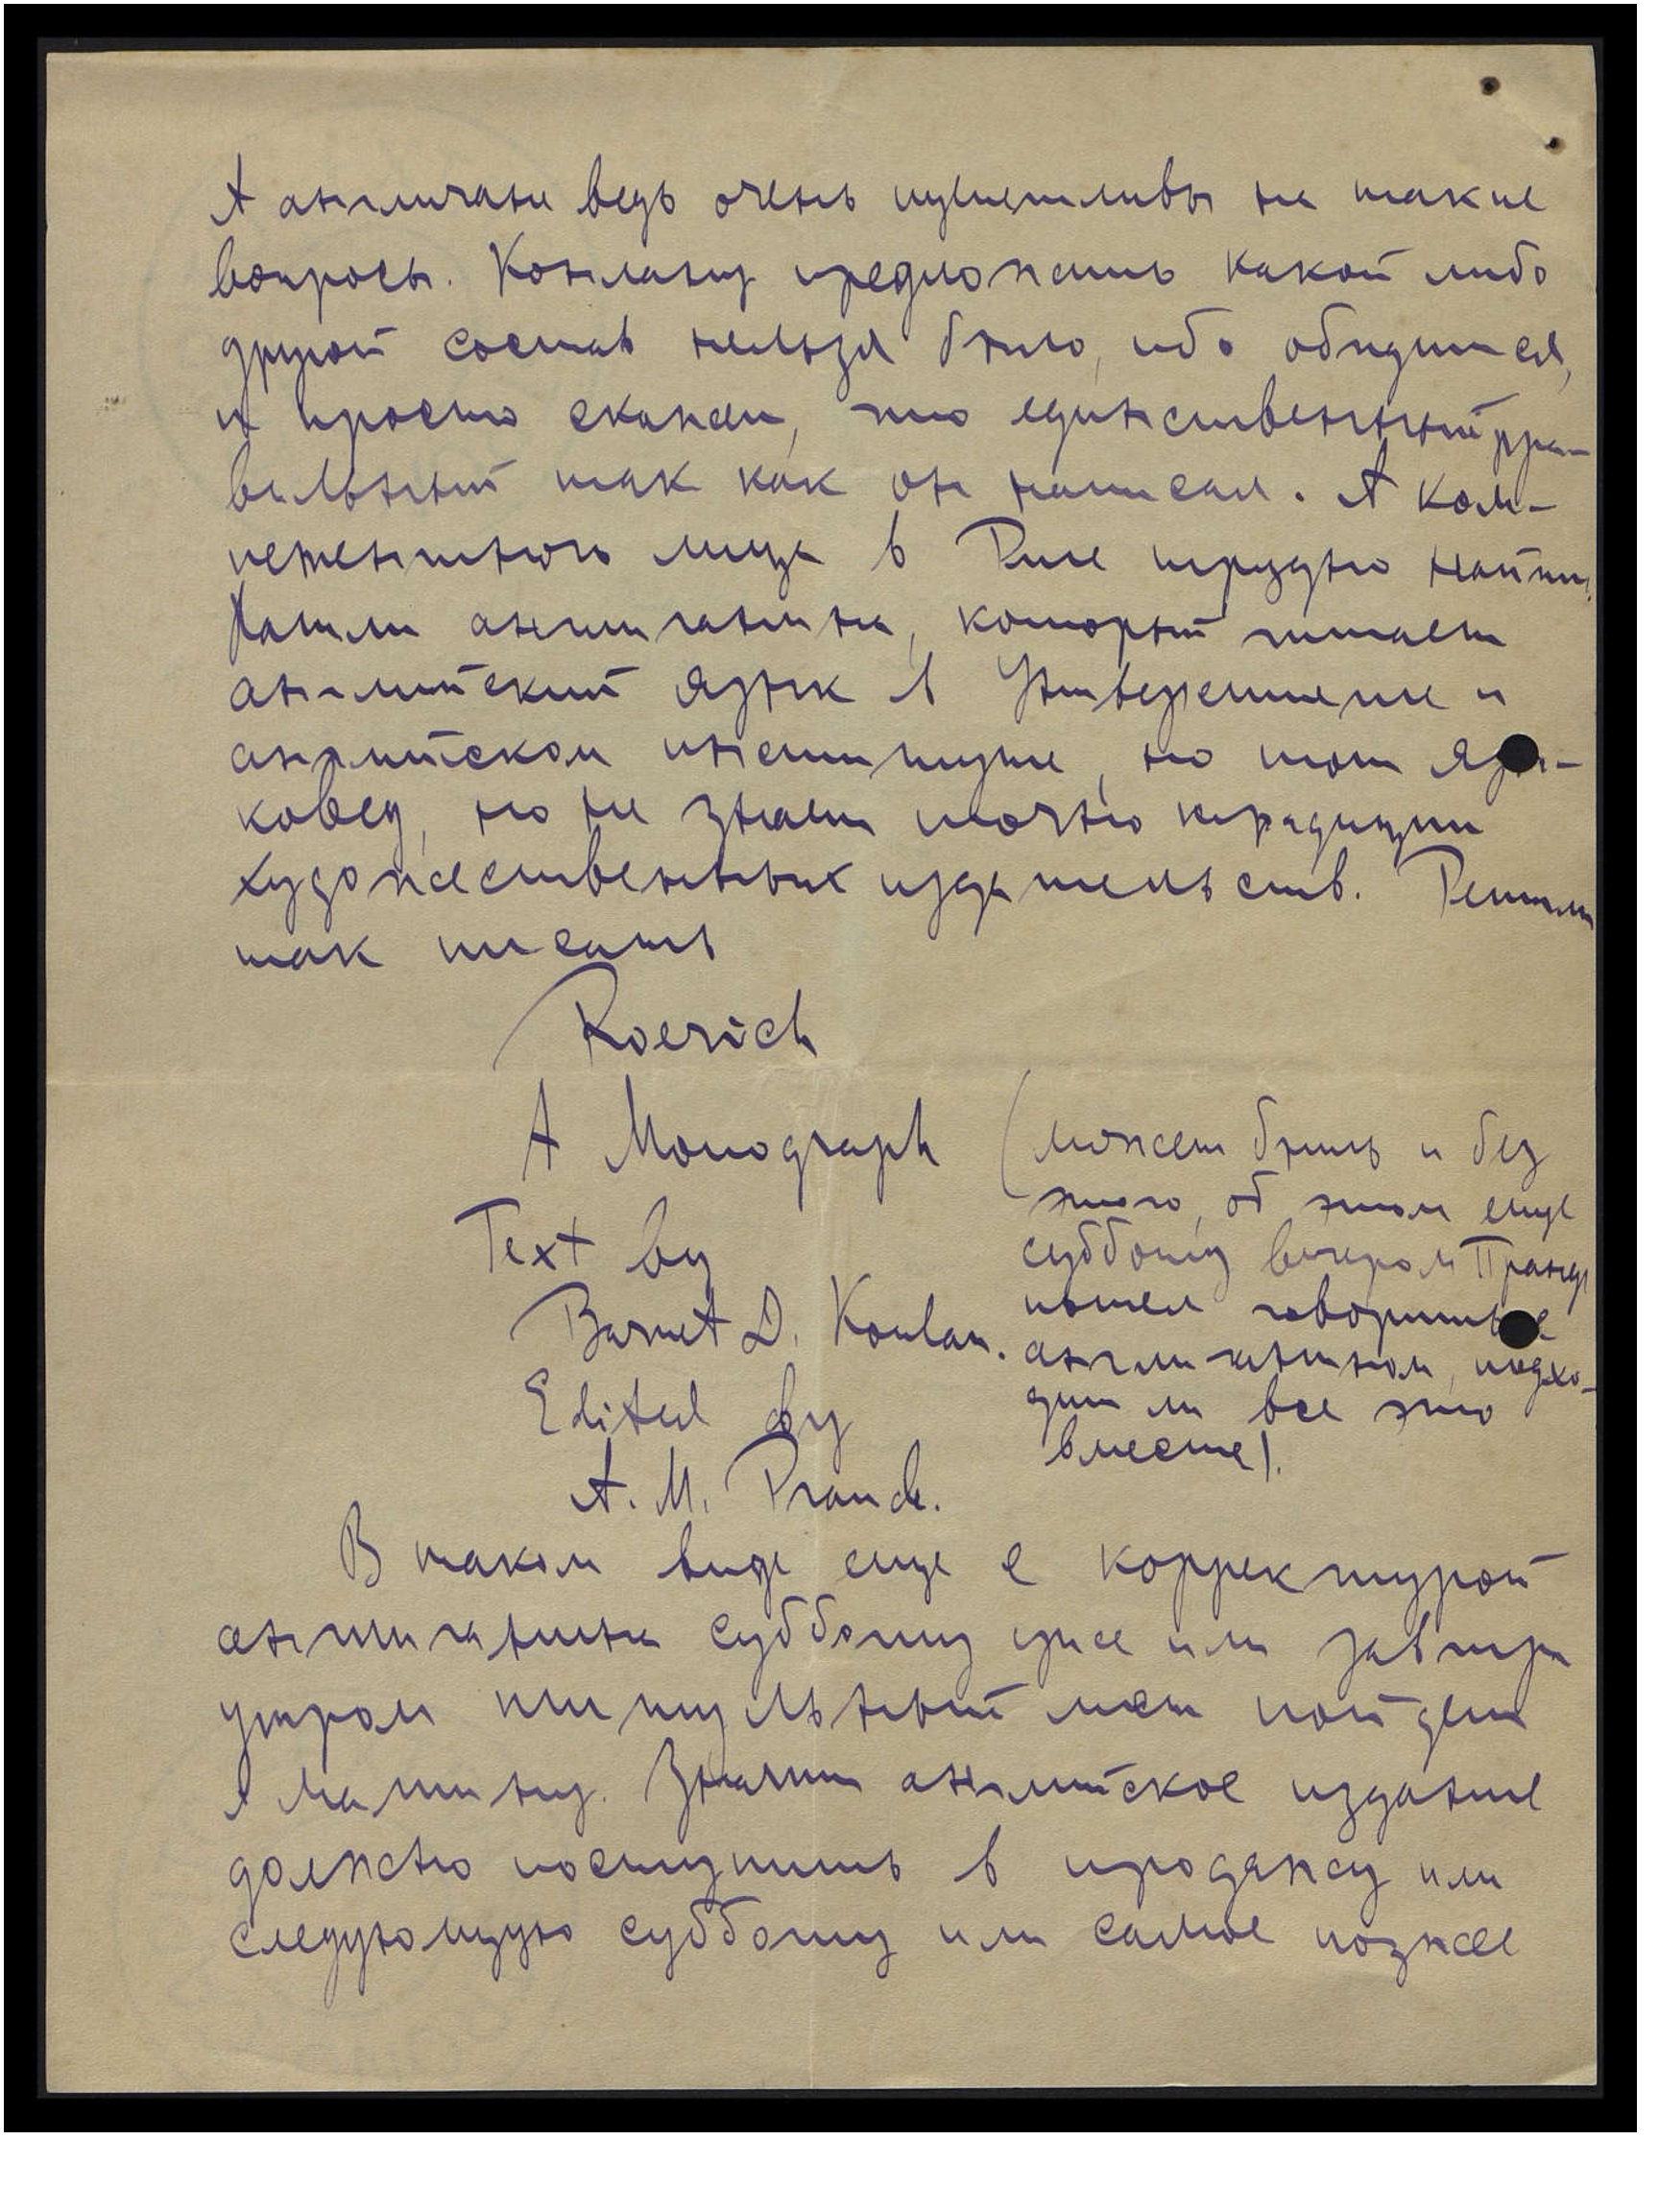 А англичане ведь очень щепетильны на такие
вопросы. Конлану предложить какой либо
другой состав нельзя было, ибо обидится,
и просто скажет, что единственный пра-
вильный так как он написал. А ком-
петентного лица в Риге трудно найти.
Нашли англичанина, который читает
английский язык в Университете и
английском институте, но тот язы-
ковед, но не знает точно традиции
художественных издательств. Решили
так писать
Roerich
A Monograph (может быть и без
этого, об этом еще
Text by
субботу вечером Пранде
Barnet D. Conlan.
пошел говорить с
англичанином, подхо-
Edited by
дит ли все это
вместе).
A. M. Prande.
В таком виде еще с корректурой
англичанина субботу уже или завтра
утром титульный лист пойдет
в машину. Значит английское издание
должно поступить в продажу или
следующую субботу или самое позже